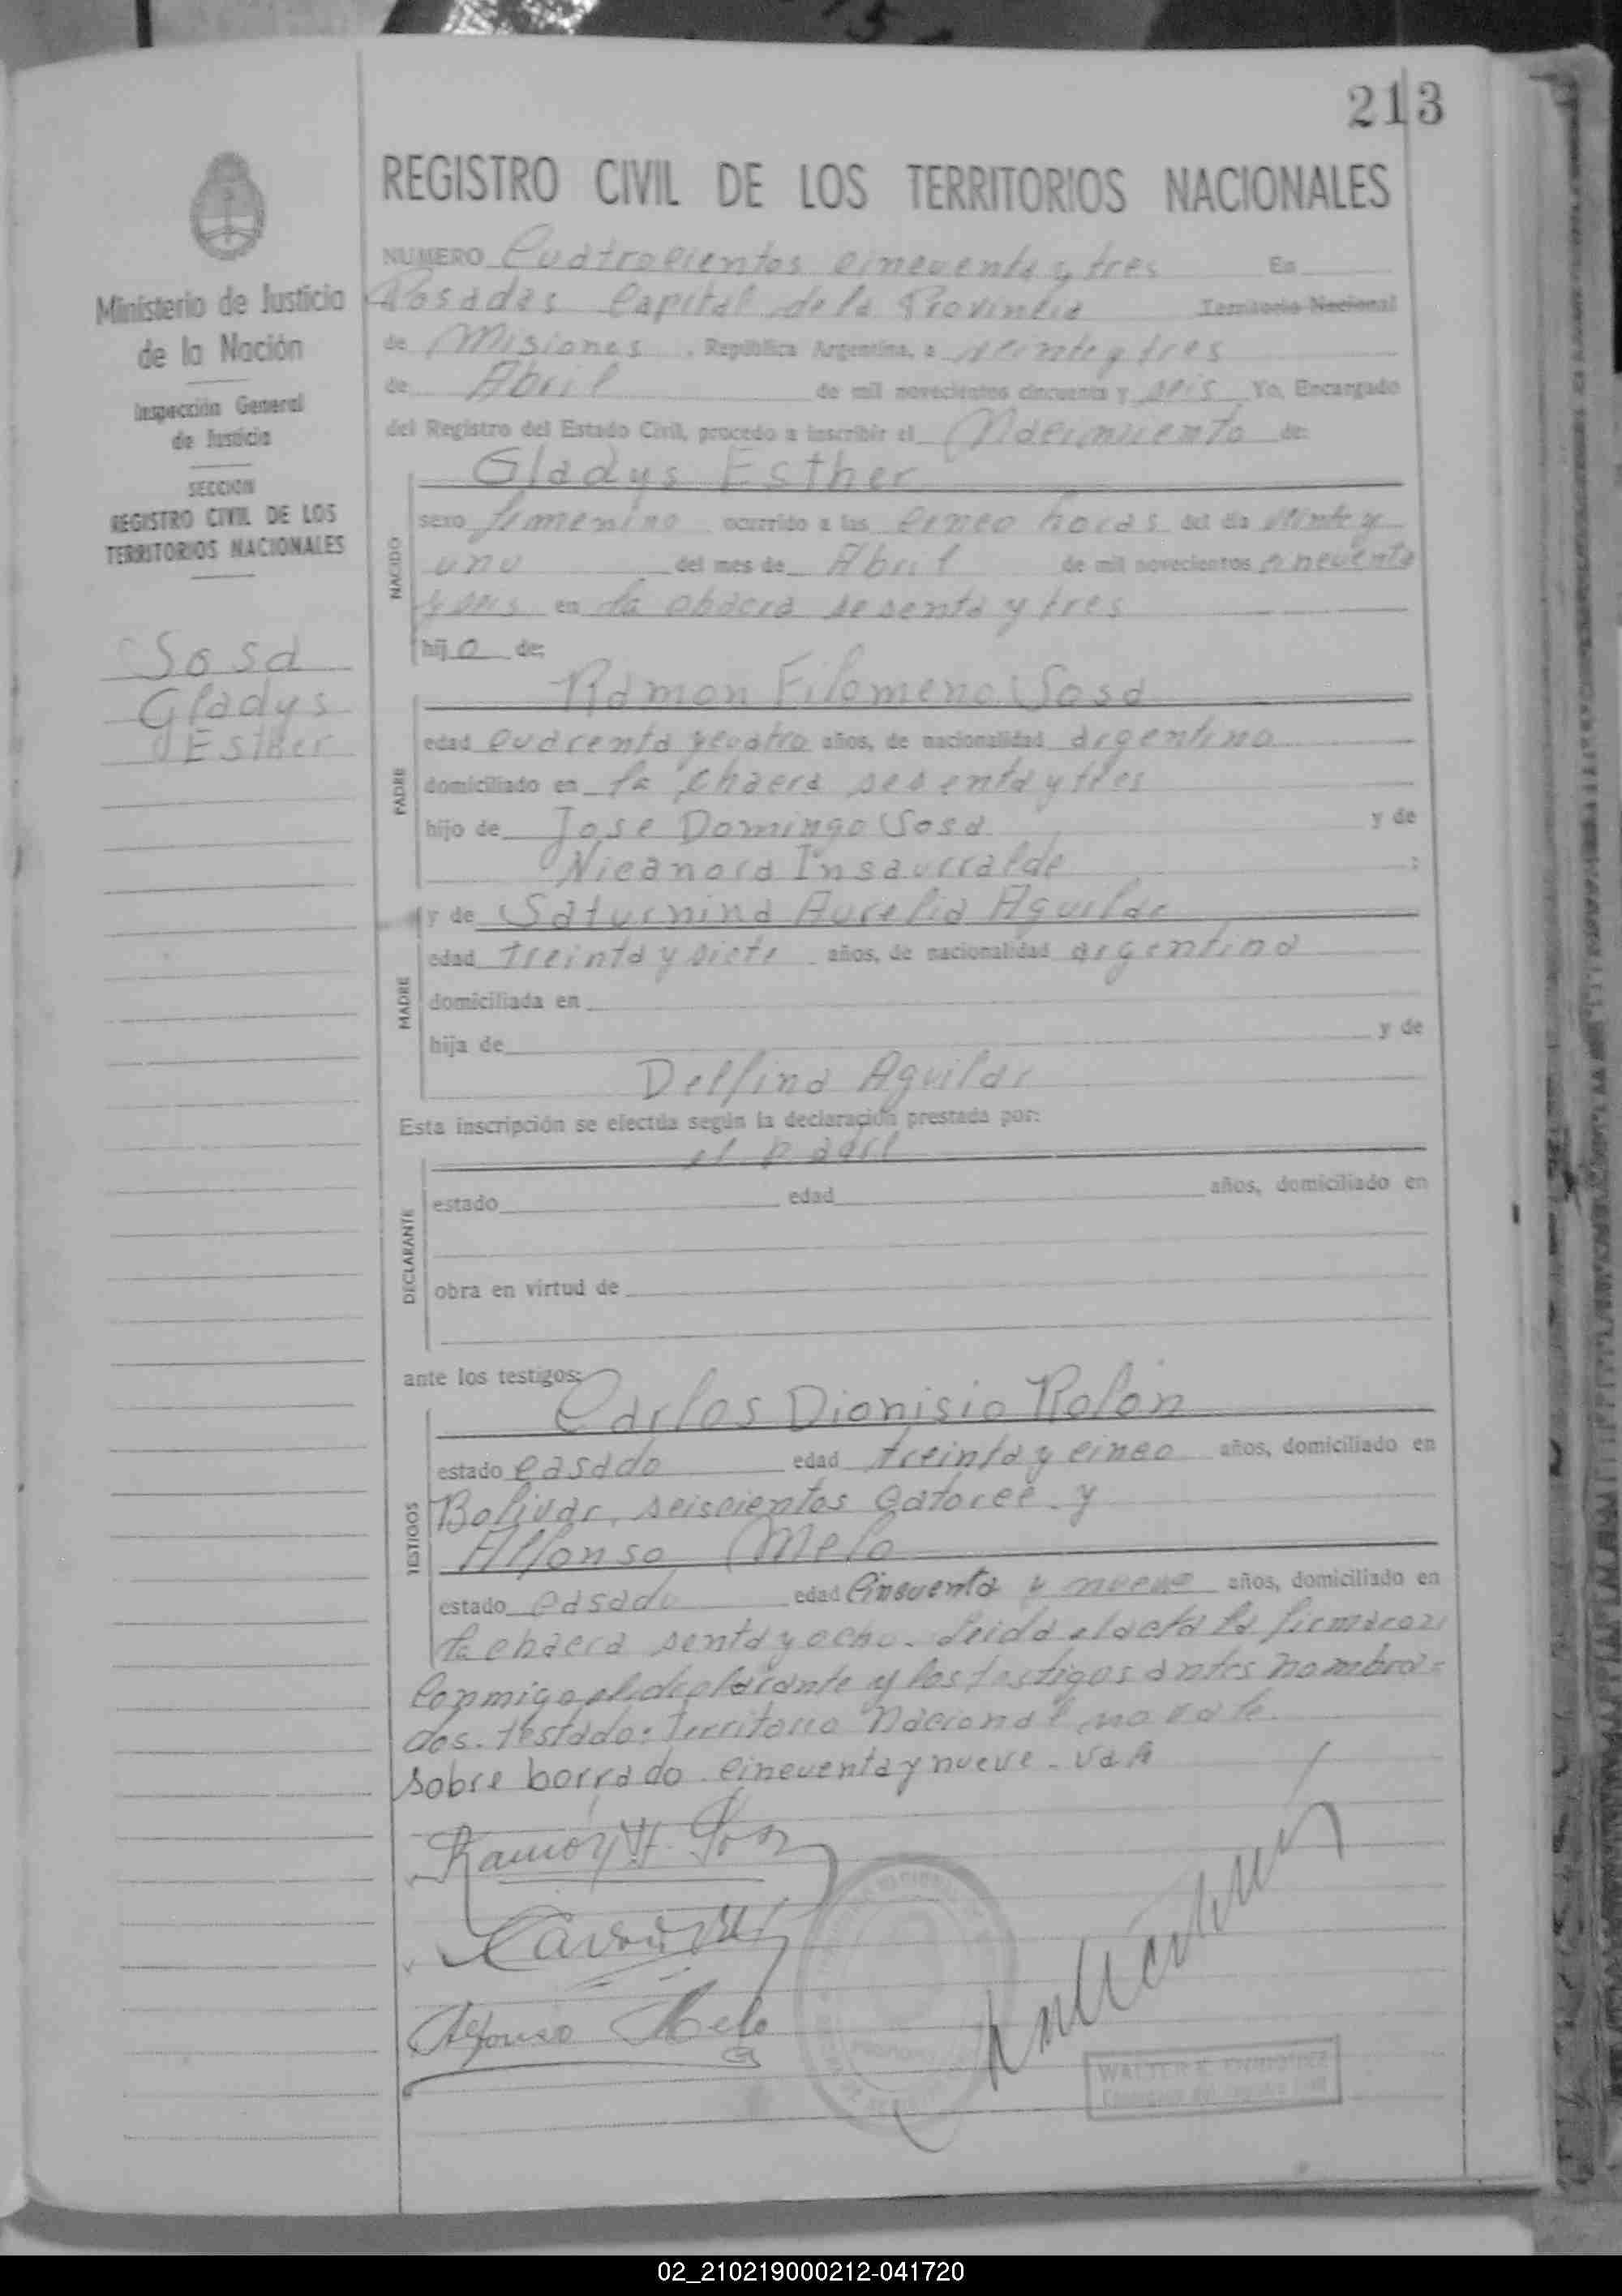 213
REGISTRO CIVIL DE LOS TERRITORIOS NACIONALES
Ministerio de Justicia
de la Nación
Inspección General
de Justicia
SECCION
REGISTRO CIVIL DE LOS
TERRITORIOS NACIONALES
Sosa
Gladys
Esther
NUMERO Cuatrocientos cincuenta y tres En
Posadas Capital de la Provincia Territorio Nacional
de Misiones, República Argentina, a veinte y tres
de Abril de mil novecientos cincuenta y seis Yo, Encargado
del Registro del Estado Civil, procedo a inscribir el Nacimiento de:
Gladys Esther
NACIDO
sexo femenino ocurrido a las cinco horas del día veinte y
uno del mes de Abril de mil novecientos cincuenta
y seis en la chacra sesenta y tres
hija de:
Ramon Filomeno Sosa
PADRE
edad cuarenta y cuatro años, de nacionalidad argentina
domiciliado en la chacra sesenta y tres
hijo de Jose Domingo Sosa y de
Nicanora Insaurralde :
MADRE
y de Saturnina Aurelia Aguilar
edad treinta y siete años, de nacionalidad argentina
domiciliada en
hija de y de
Delfina Aguilar
Esta inscripción se efectúa según la declaración prestada por:
el padre
DECLARANTE
estado edad años, domiciliado en
obra en virtud de
ante los testigos:
Carlos Dionisio Rolon
TESTIGOS
estado casado edad treinta y cinco años, domiciliado en
Bolivar, seiscientos catorce y
Alfonso Melo
estado casado edad Cincuenta y nueve años, domiciliado en
la chacra senta y ocho. Leida el acta la firmaron
conmigo el declarante y los testigos antes nombra=
dos. Testado: Territorio Nacional no vale.
Sobre borrado cincuenta y nueve - vale
Ramón F. Sosa
Alfonso Melo
WALTER E.
Encargado del Registro Civil
02_210219000212-041720